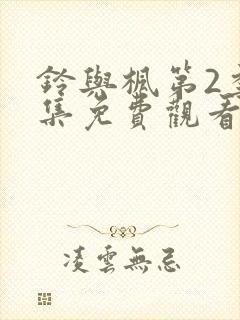 鈴與楓第2季
集免費觀看
凌雲無忌